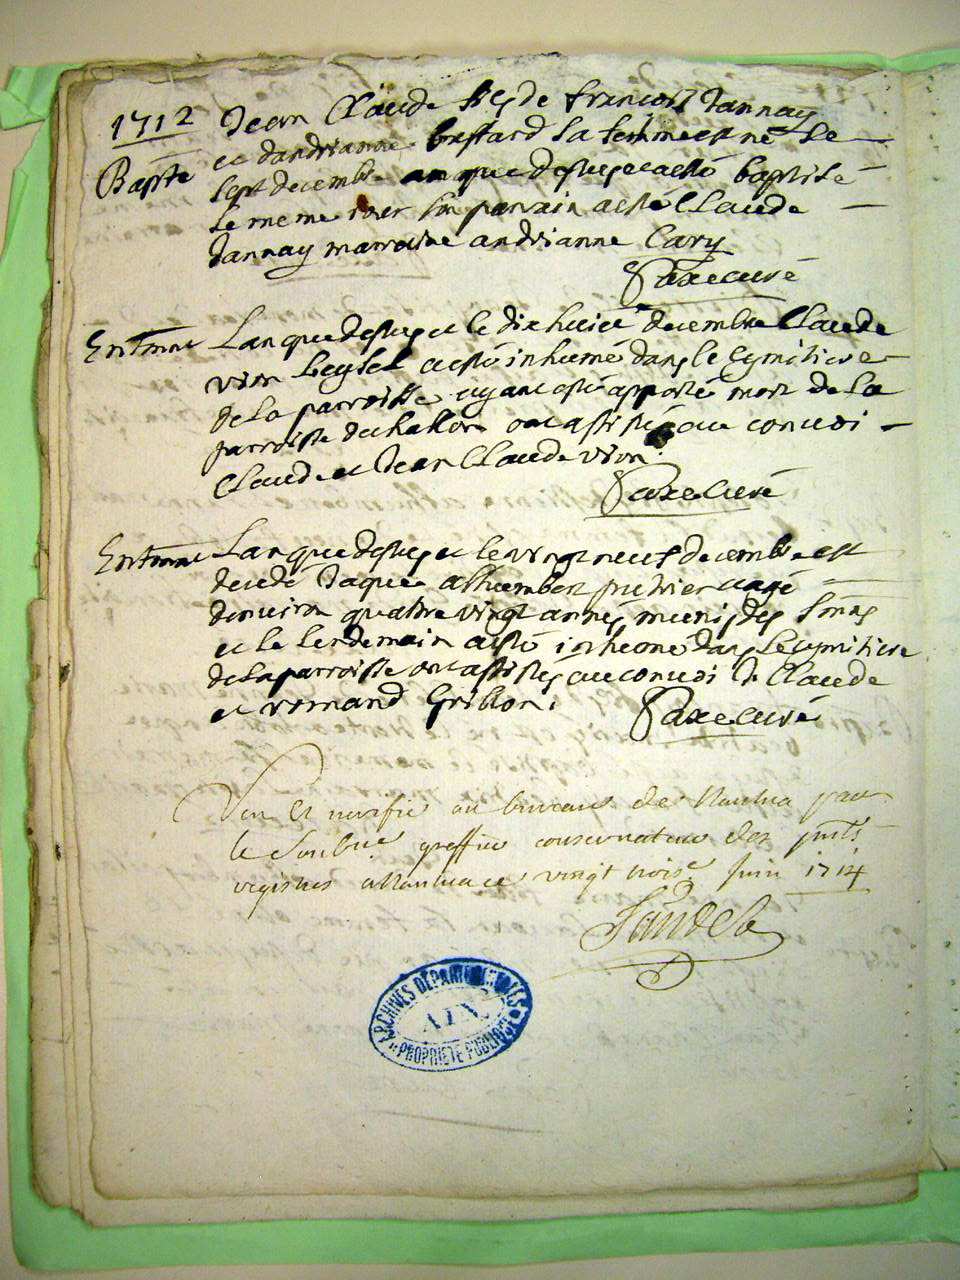 1712 Jean Claude fils de francois Jannay
Bapte et dandrianne bastard sa femme est né le
sept decembre an que dessus et a esté baptisé
le meme iour son parrain a esté Claude
Jannay marraine andrianne Cary
Saxe curé
Enterment Lan que dessus et le dix huict decembre Claude
vion a esté inhumé dans le cymitiere
de la parroisse ayant esté apporté mort de la
parroisse de ont assistés au convoi
Claude et Jean Claude vion
Saxe curé
Enterment Lan que dessus et le vingt neuf decembre est
decedé Jaque allhumbert agé
denuiron quatre vingt années munis des
et le lendemain a esté inhumé dans le cymitiere
de la parroisse ont assistés au convoi de Claude
et romand Grillon
Saxe curé
Veu et verifié au bureau de Nantua par
le greffier conservateur des
registres a Nantua ce vingt trois Juin 1714
ARCHIVES DÉPARTEMENTALES
AIN
PROPRIÉTÉ PUBLIQUE